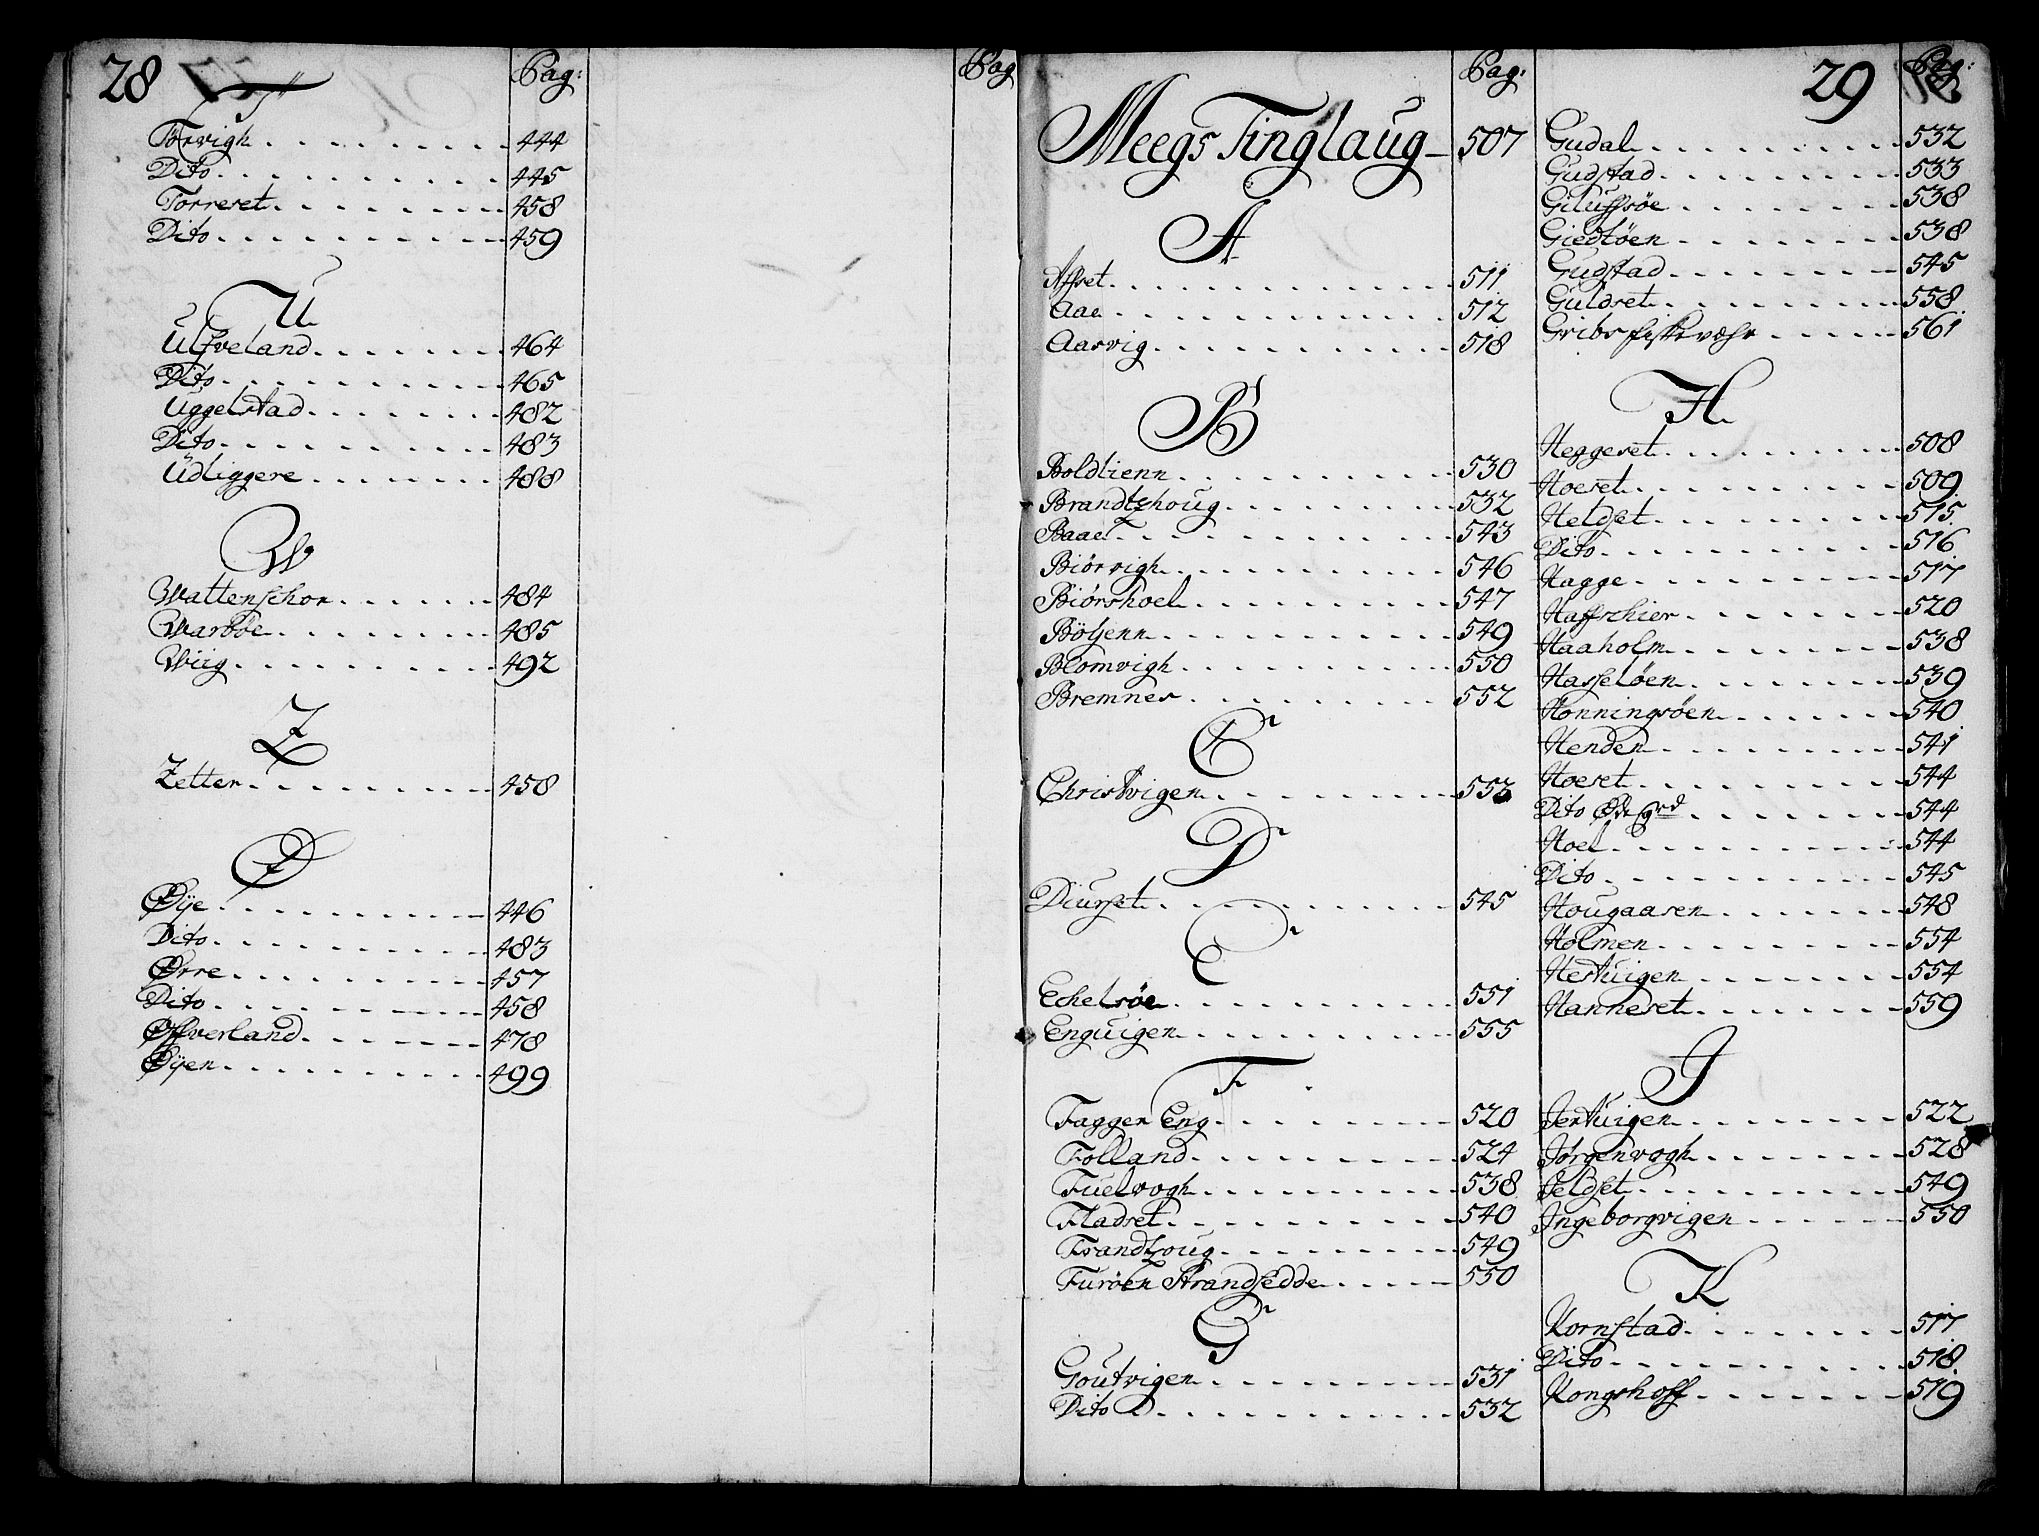 28
Pag:
T
Tørvigh 444
Dito 445
Torreset 458
Dito 459
U
Ulfveland 464
Dito 465
Uggelstad 482
Dito 483
Udliggere 488
W
Wattenschor 484
Warbøe 485
Wiig 492
Z
Zetter 458
Ø
Øÿe 446
Dito 483
Ørre 457
Dito 458
Øffverland 478
Øÿen 499
Pag
Pag:
Meegs Tinglaug 507
A
Affset 511
Aae 512
Aarvig 518
B
Boldlienn 530
Brandtzhoug 532
Baae 543
Biørvigh 546
Biørshoel 547
Bölgenn 549
Blomvigh 550
Bremnes 552
C
Christvigen 553
D
Diurset 545
E
Echelsøe 551
Engvigen 555
F
Fagger Eng 520
Folland 524
Fuelvogh 538
Fladset 540
Frandtzoug 549
Furöen Strandsedde 550
G
Goutvigen 531
Dito 532
29
Pag:
Gudal 532
Gudstad 533
Giluffsøe 538
Giedtøen 538
Gudstad 545
Guldset 558
Gribs fiskevæhr 561
H
Heggeset 508
Hoeset 509
Heldset 515
Dito 516
Hagge 517
Haffschier 520
Haaholm 538
Hasseløen 539
Honningsøen 540
Henden 541
Hoeset 544
Dito Øde Grd 544
Hoel 544
Dito 545
Hougaasen 548
Holmen 554
Hestuigen 554
Hanneset 559
J
Jertuigen 522
Jørgenvogh 528
Jeldset 549
Jngeborgvigen 550
K
Kornstad 517
Dito 518
Kongshoff 519